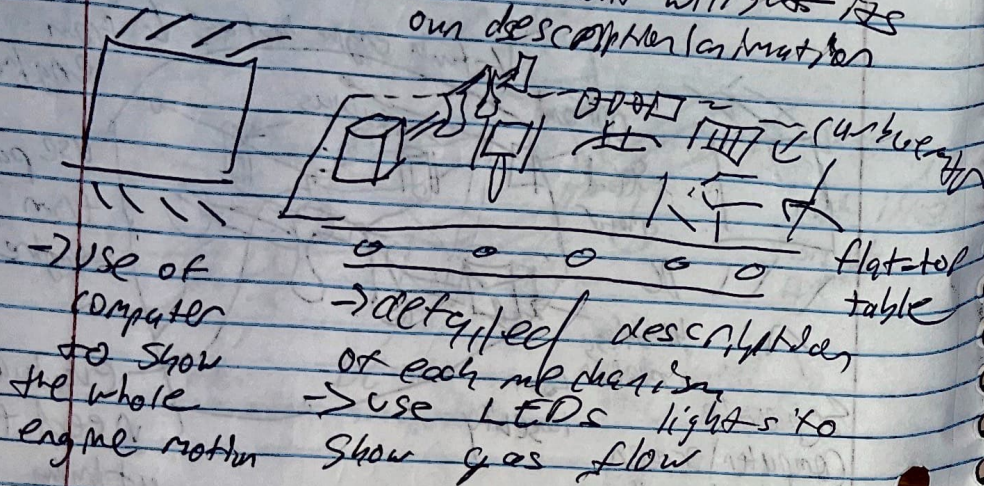 its
own description/animation
flat-top
table
-> use of
computer
to show
the whole
engine motion
-> detailed description
of each mechanism
-> use LEDs lights to
show gas flow